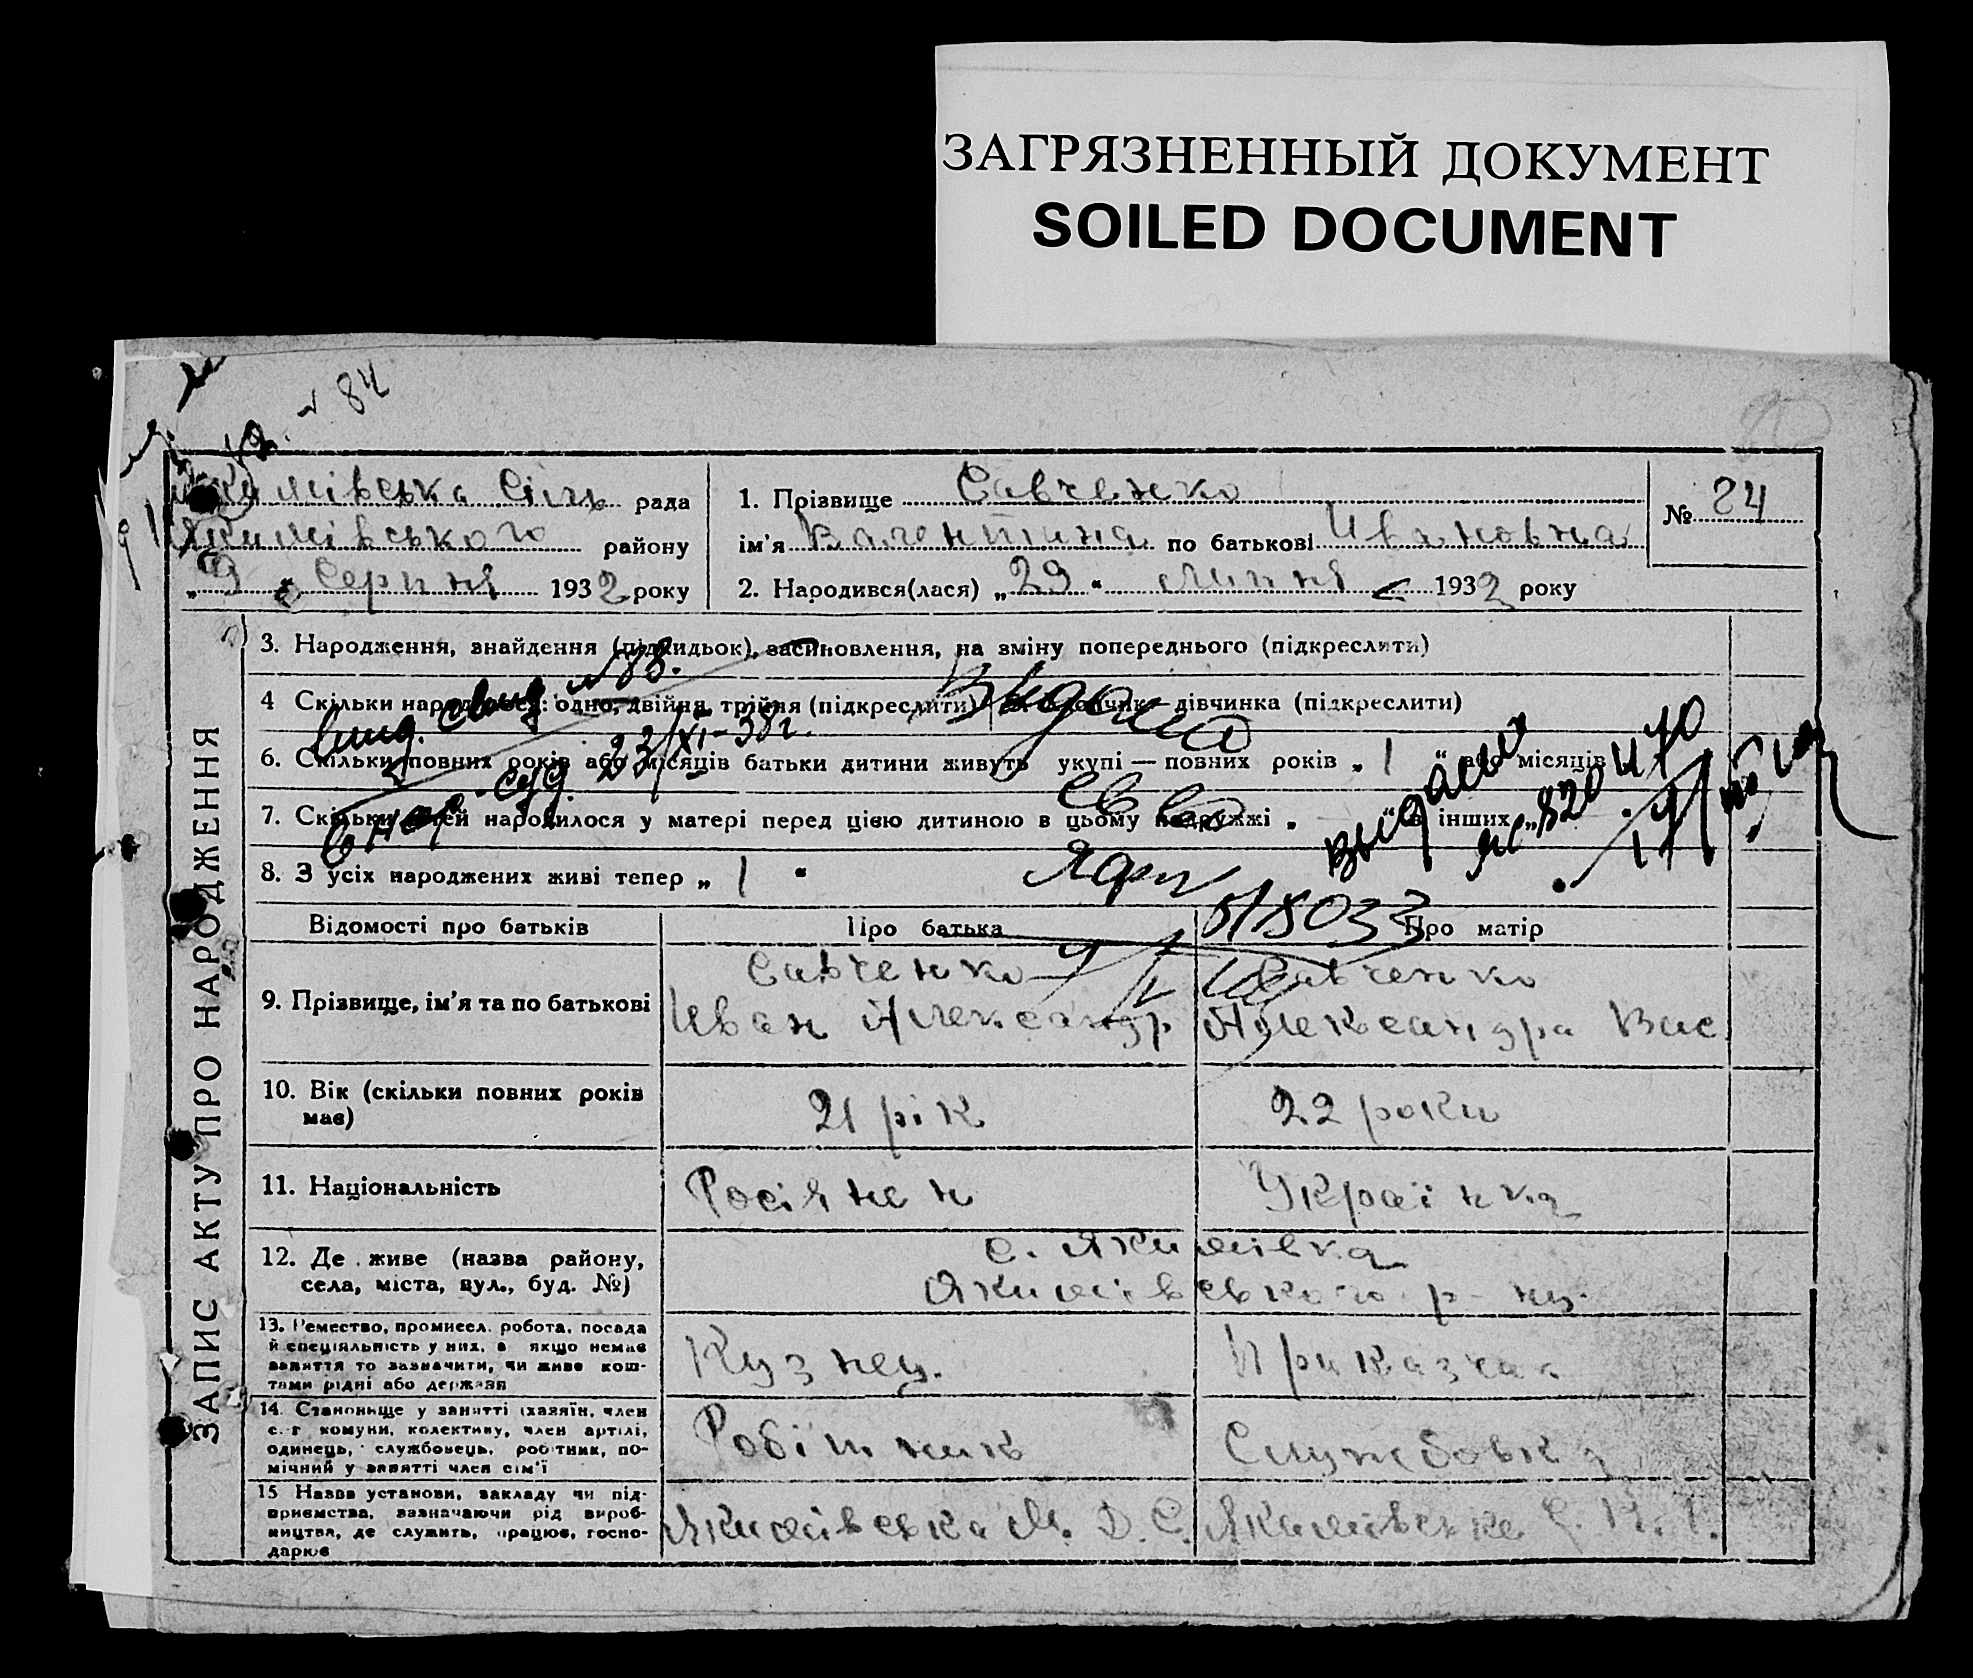 ЗАГРЯЗНЕННЫЙ ДОКУМЕНТ
SOILED DOCUMENT
84
Якимівська Сіль рада
Якимівського району
„9“ Серпня 1932 року
1. Прізвище Савченко
ім'я Валентина по батькові Ивановна
2. Народився(лася) „29“ Липня 1932 року
№ 84
ЗАПИС АКТУ ПРО НАРОДЖЕННЯ
3. Народження, знайдення (підкидьок), засиновлення, на зміну попереднього (підкреслити)
4 Скільки народилося: одно, двійня, трійня (підкреслити) хлопчик—дівчинка (підкреслити)
6. Скільки повних років або місяців батьки дитини живуть укупі — повних років „1“ або місяців
7. Скільки дітей народилося у матері перед цією дитиною в цьому подружжі „ “ в інших „
8. З усіх народжених живі тепер „1“
23/XI-38г.
Видано
выдано
Відомості про батьків Про батька Про матір
9. Прізвище, ім'я та по батькові
Савченко
Иван Александр
Савченко
Александра Вас
10. Вік (скільки повних років
має)
21 рік
22 роки
11. Національність
Росіянен
Українка
12. Де живе (назва району,
села, міста, вул., буд. №)
с. Якимівка
Якимівського р-ну.
13. Ремество, промисел. робота, посада
й спеціяльність у них, а якщо немає
заняття то зазначити, чи живе кош-
тами рідні або держави
Кузнец.
Приказчик
14. Становище у занятті (хазяїн, член
с.-г комуни, колективу, член артілі,
одинець, службовець, робітник, по-
мічний у занятті член сім'ї
Робітник
Службовка
15 Назва установи, закладу чи під-
приємства, зазначаючи рід вироб-
ництва, де служить, працює, госпо-
дарює
Якимівська М. Д. С.
Якимівське